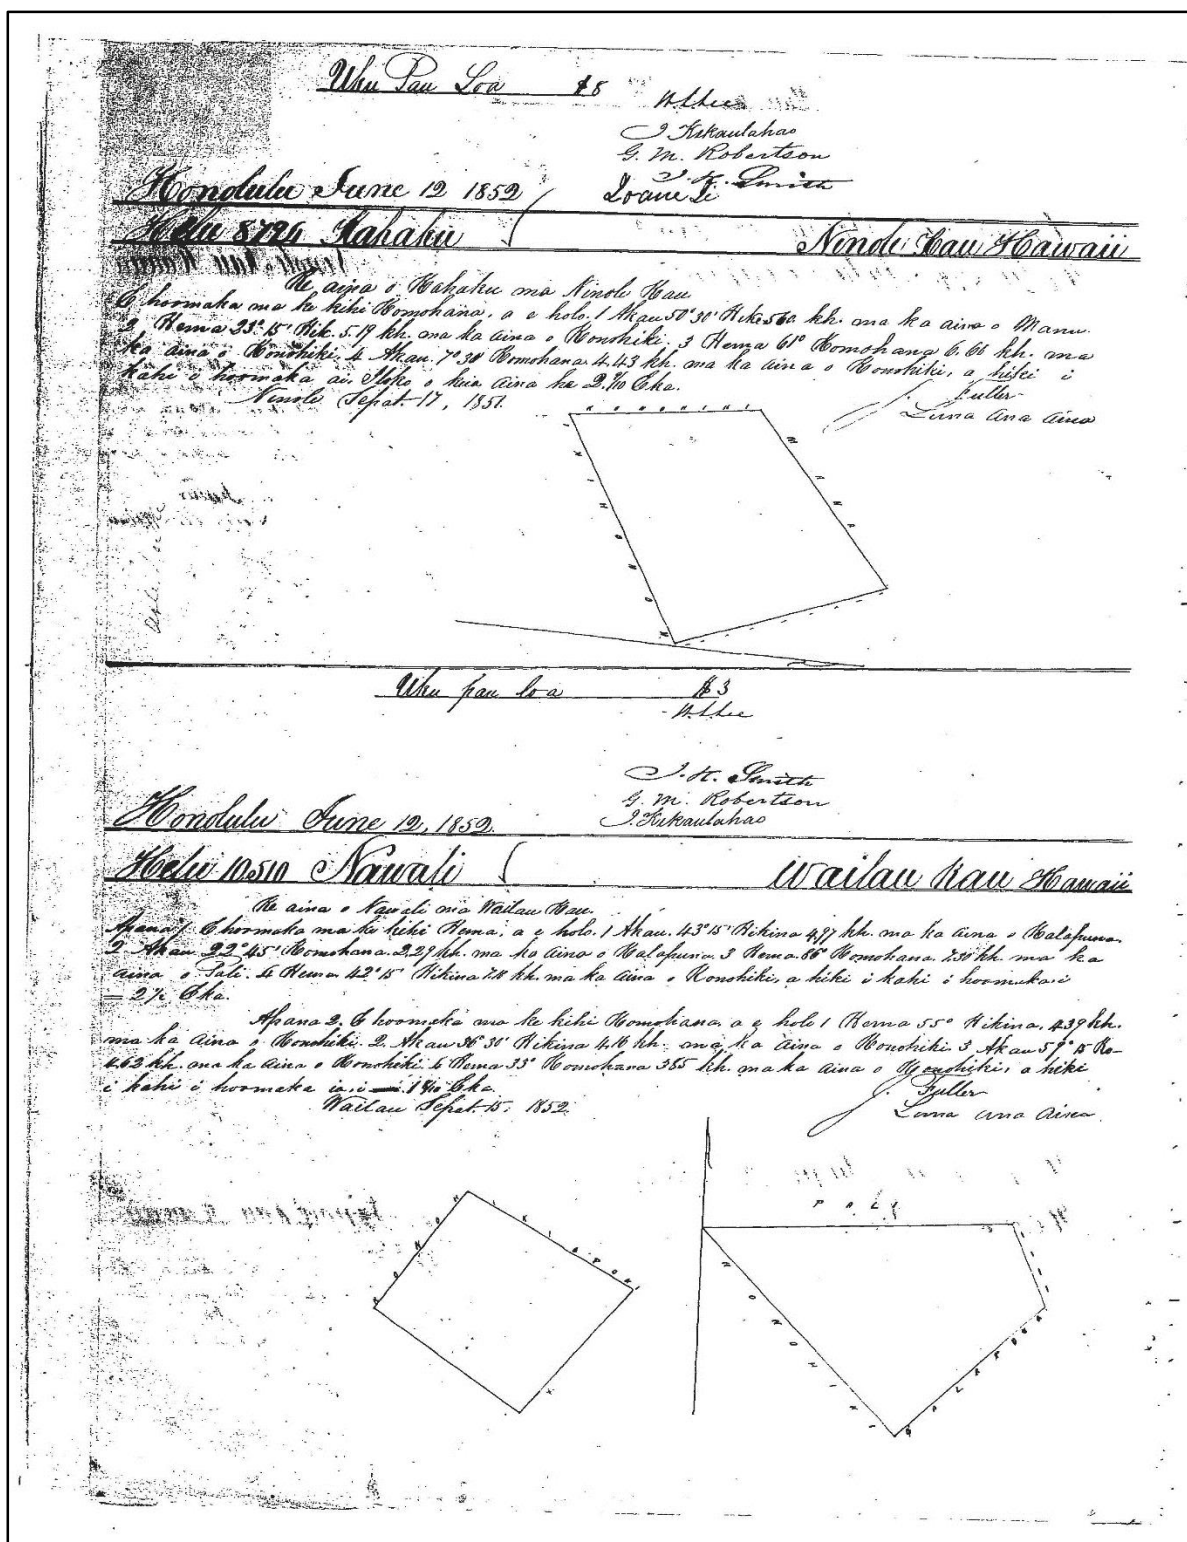 Uku Pau Loa $8
W. L. Lee
J. Kekaulahao
G. M. Robertson
J. H. Smith
Honolulu June 12 1852 Ioane Ii
Helu 8724 Kahaku Ninole Kau Hawaii
Ke aina o Kahaku ma Ninole Kau
E hoomaka ma ke kihi Komohana, a e holo. 1 Akau 50° 30' Hik. kh. ma ka aina o Manu
2, Hema 23° 15' Hik. 5.19 kh. ma ka aina o Konohiki, 3 Hema 61° Komohana 6.66 kh. ma
ka aina o Konohiki. 4 Akau. 7° 30' Komohana 4.43 kh. ma ka aina o Konohiki, a hiki i
kahi i hoomaka ai. Iloko o keia aina he Eka.
Ninole Sepat. 17, 1851. J. Fuller
Luna Ana Aina
KONOHIKI
MANU
KONOHIKI
Uku pau loa $3
W. L. Lee
J. H. Smith
G. M. Robertson
Honolulu June 12, 1852. J. Kekaulahao
Helu 10.510 Nawali Wailau Kau Hawaii
Ke aina o Nawali ma Wailau Kau.
Apana 1. E hoomaka ma ke kihi Hema, a e holo. 1 Akau. 43° 15' Hikina 4.97 kh. ma ka aina o Kalapuna.
2 Akau. 22° 45' Komohana. 2.29 kh. ma ka aina o Kalapuna. 3 Hema 66° Komohana. 7.30 kh. ma ka
aina o Pali. 4 Hema 42° 15' Hikina 7.18 kh. ma ka aina o Konohiki, a hiki i kahi i hoomaka i
= Eka.
Apana 2. E hoomaka ma ke kihi Komohana a e holo 1 Hema 55° Hikina. 4.39 kh.
ma ka aina o Konohiki. 2. Akau 36° 30' Hikina 4.16 kh. ma ka aina o Konohiki 3 Akau 59° 15 Ko-
4.62 kh. ma ka aina o Konohiki. 4 Hema 33° Komohana 3.65 kh. ma ka aina o Konohiki, a hiki
i kahi i hoomaka ia. Eka.
Wailau Sepat. 15, 1852. J. Fuller
Luna ana Aina
KONOHIKI